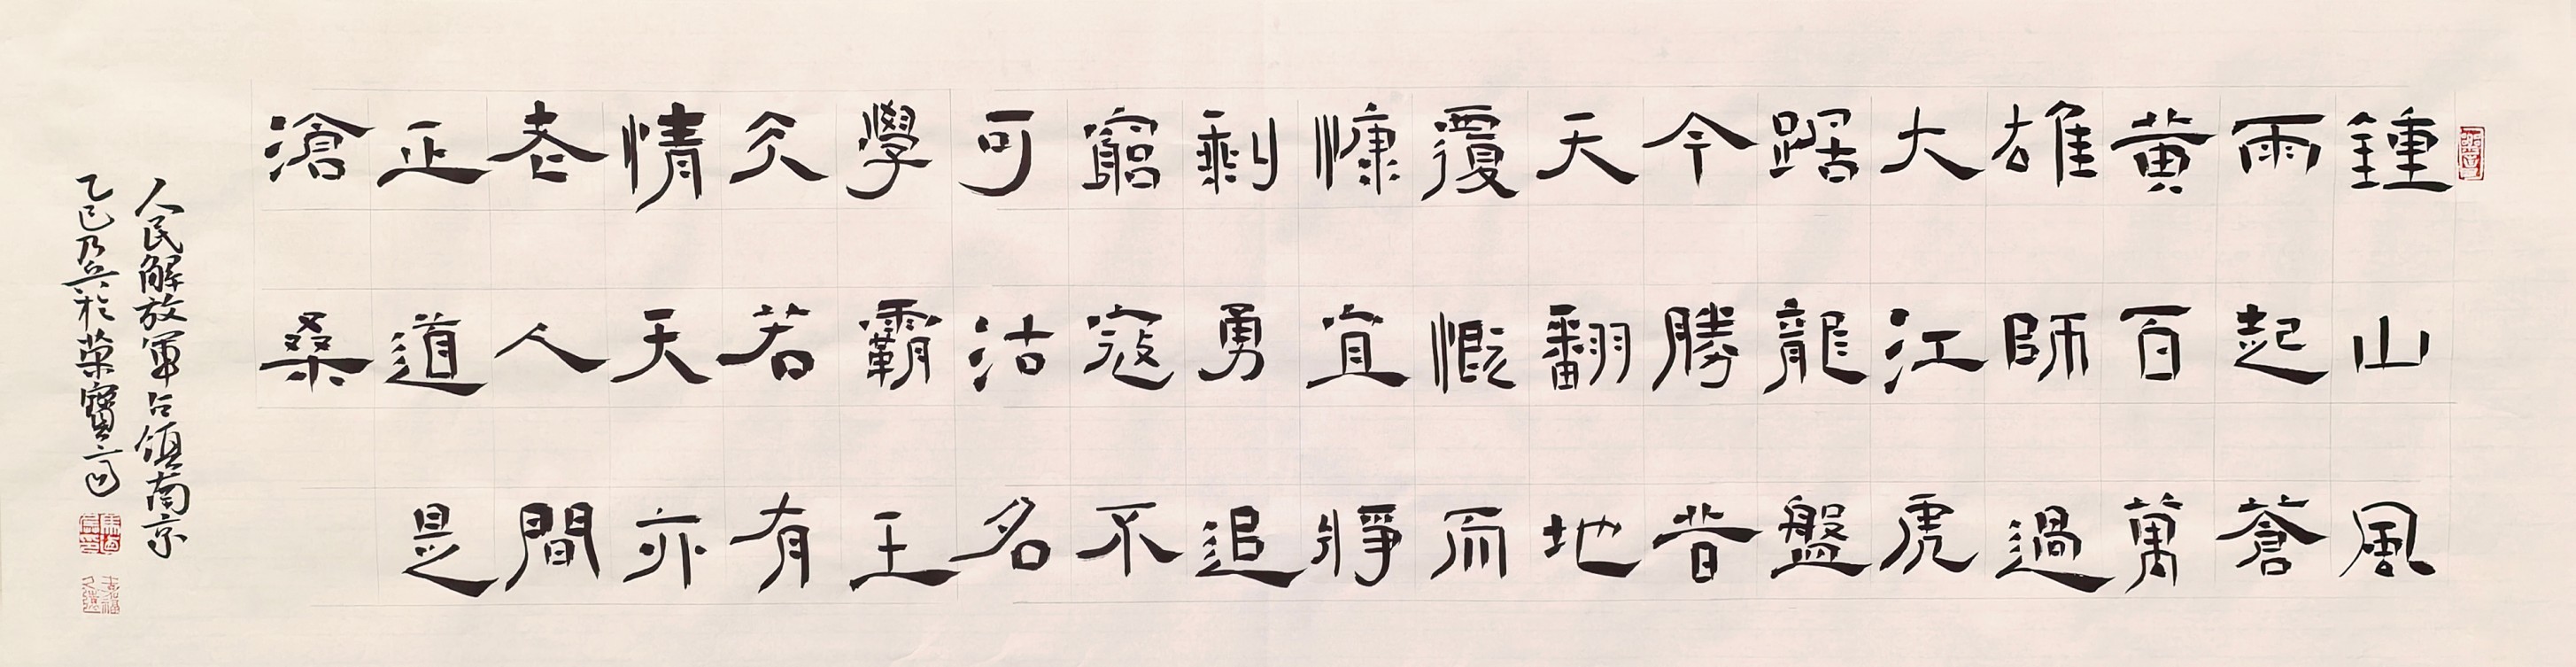 鍾山風
雨起蒼
黃百萬
雄師過
大江虎
踞龍盤
今勝昔
天翻地
覆慨而
慷宜將
剩勇追
窮寇不
可沽名
學霸王
天若有
情天亦
老人間
正道是
滄桑
人民解放軍占領南京
乙巳乃兵於榮寶齋